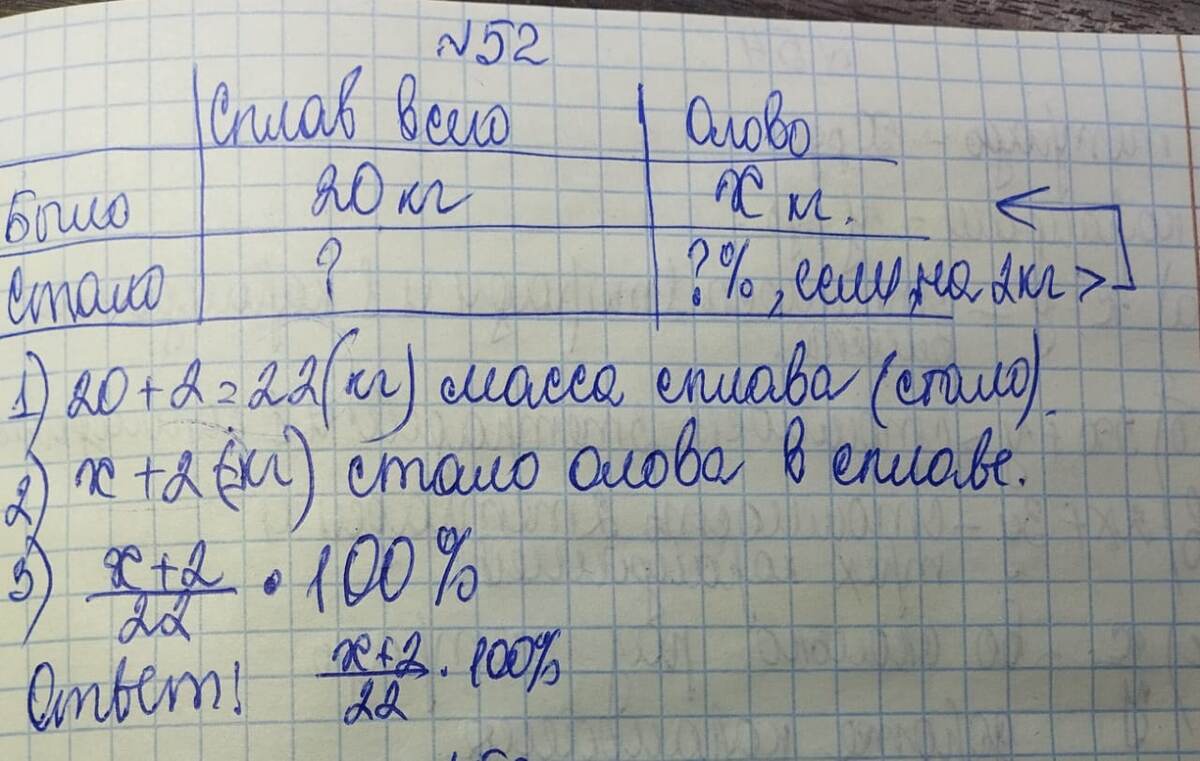 №52
Сплав всего Олово
Было 20 кг x кг.
Стало ? ?%, если, на 2кг >
1) 20+2=22(кг) масса сплава (стало).
2) x+2 (кг) стало олова в сплаве.
3) x+2/22 · 100%
Ответ: x+2/22 · 100%